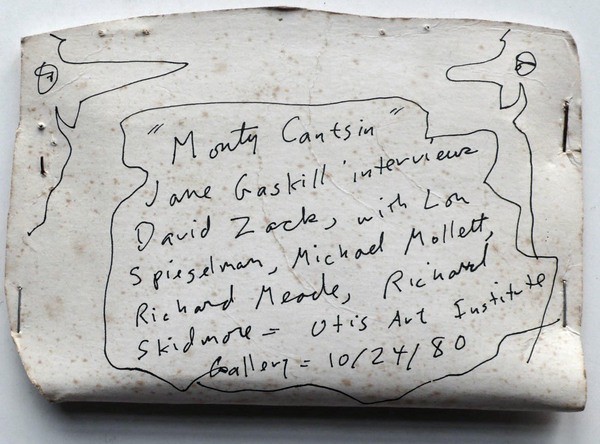 "Monty Cantsin"
Jane Gaskill interviews
David Zack, with Lon
Spiegelman, Michael Mollett,
Richard Meade, Richard
Skidmore = Otis Art Institute
Gallery = 10/24/80